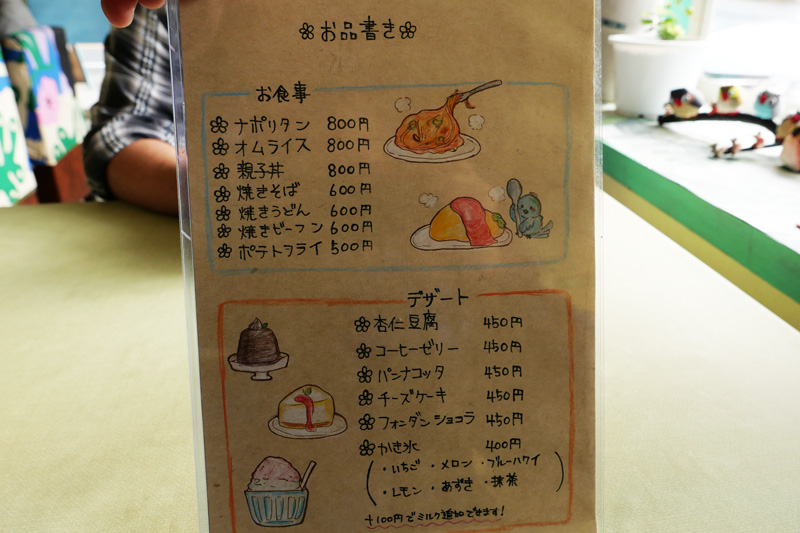 お品書き
お食事
ナポリタン 800円
オムライス 800円
親子丼 800円
焼きそば 600円
焼きうどん 600円
焼きビーフン 600円
ポテトフライ 500円
デザート
杏仁豆腐 450円
コーヒーゼリー 450円
パンナコッタ 450円
チーズケーキ 450円
フォンダンショコラ 450円
かき氷 400円
(・いちご ・メロン ・ブルーハワイ
・レモン ・あずき ・抹茶)
+100円でミルク追加できます!